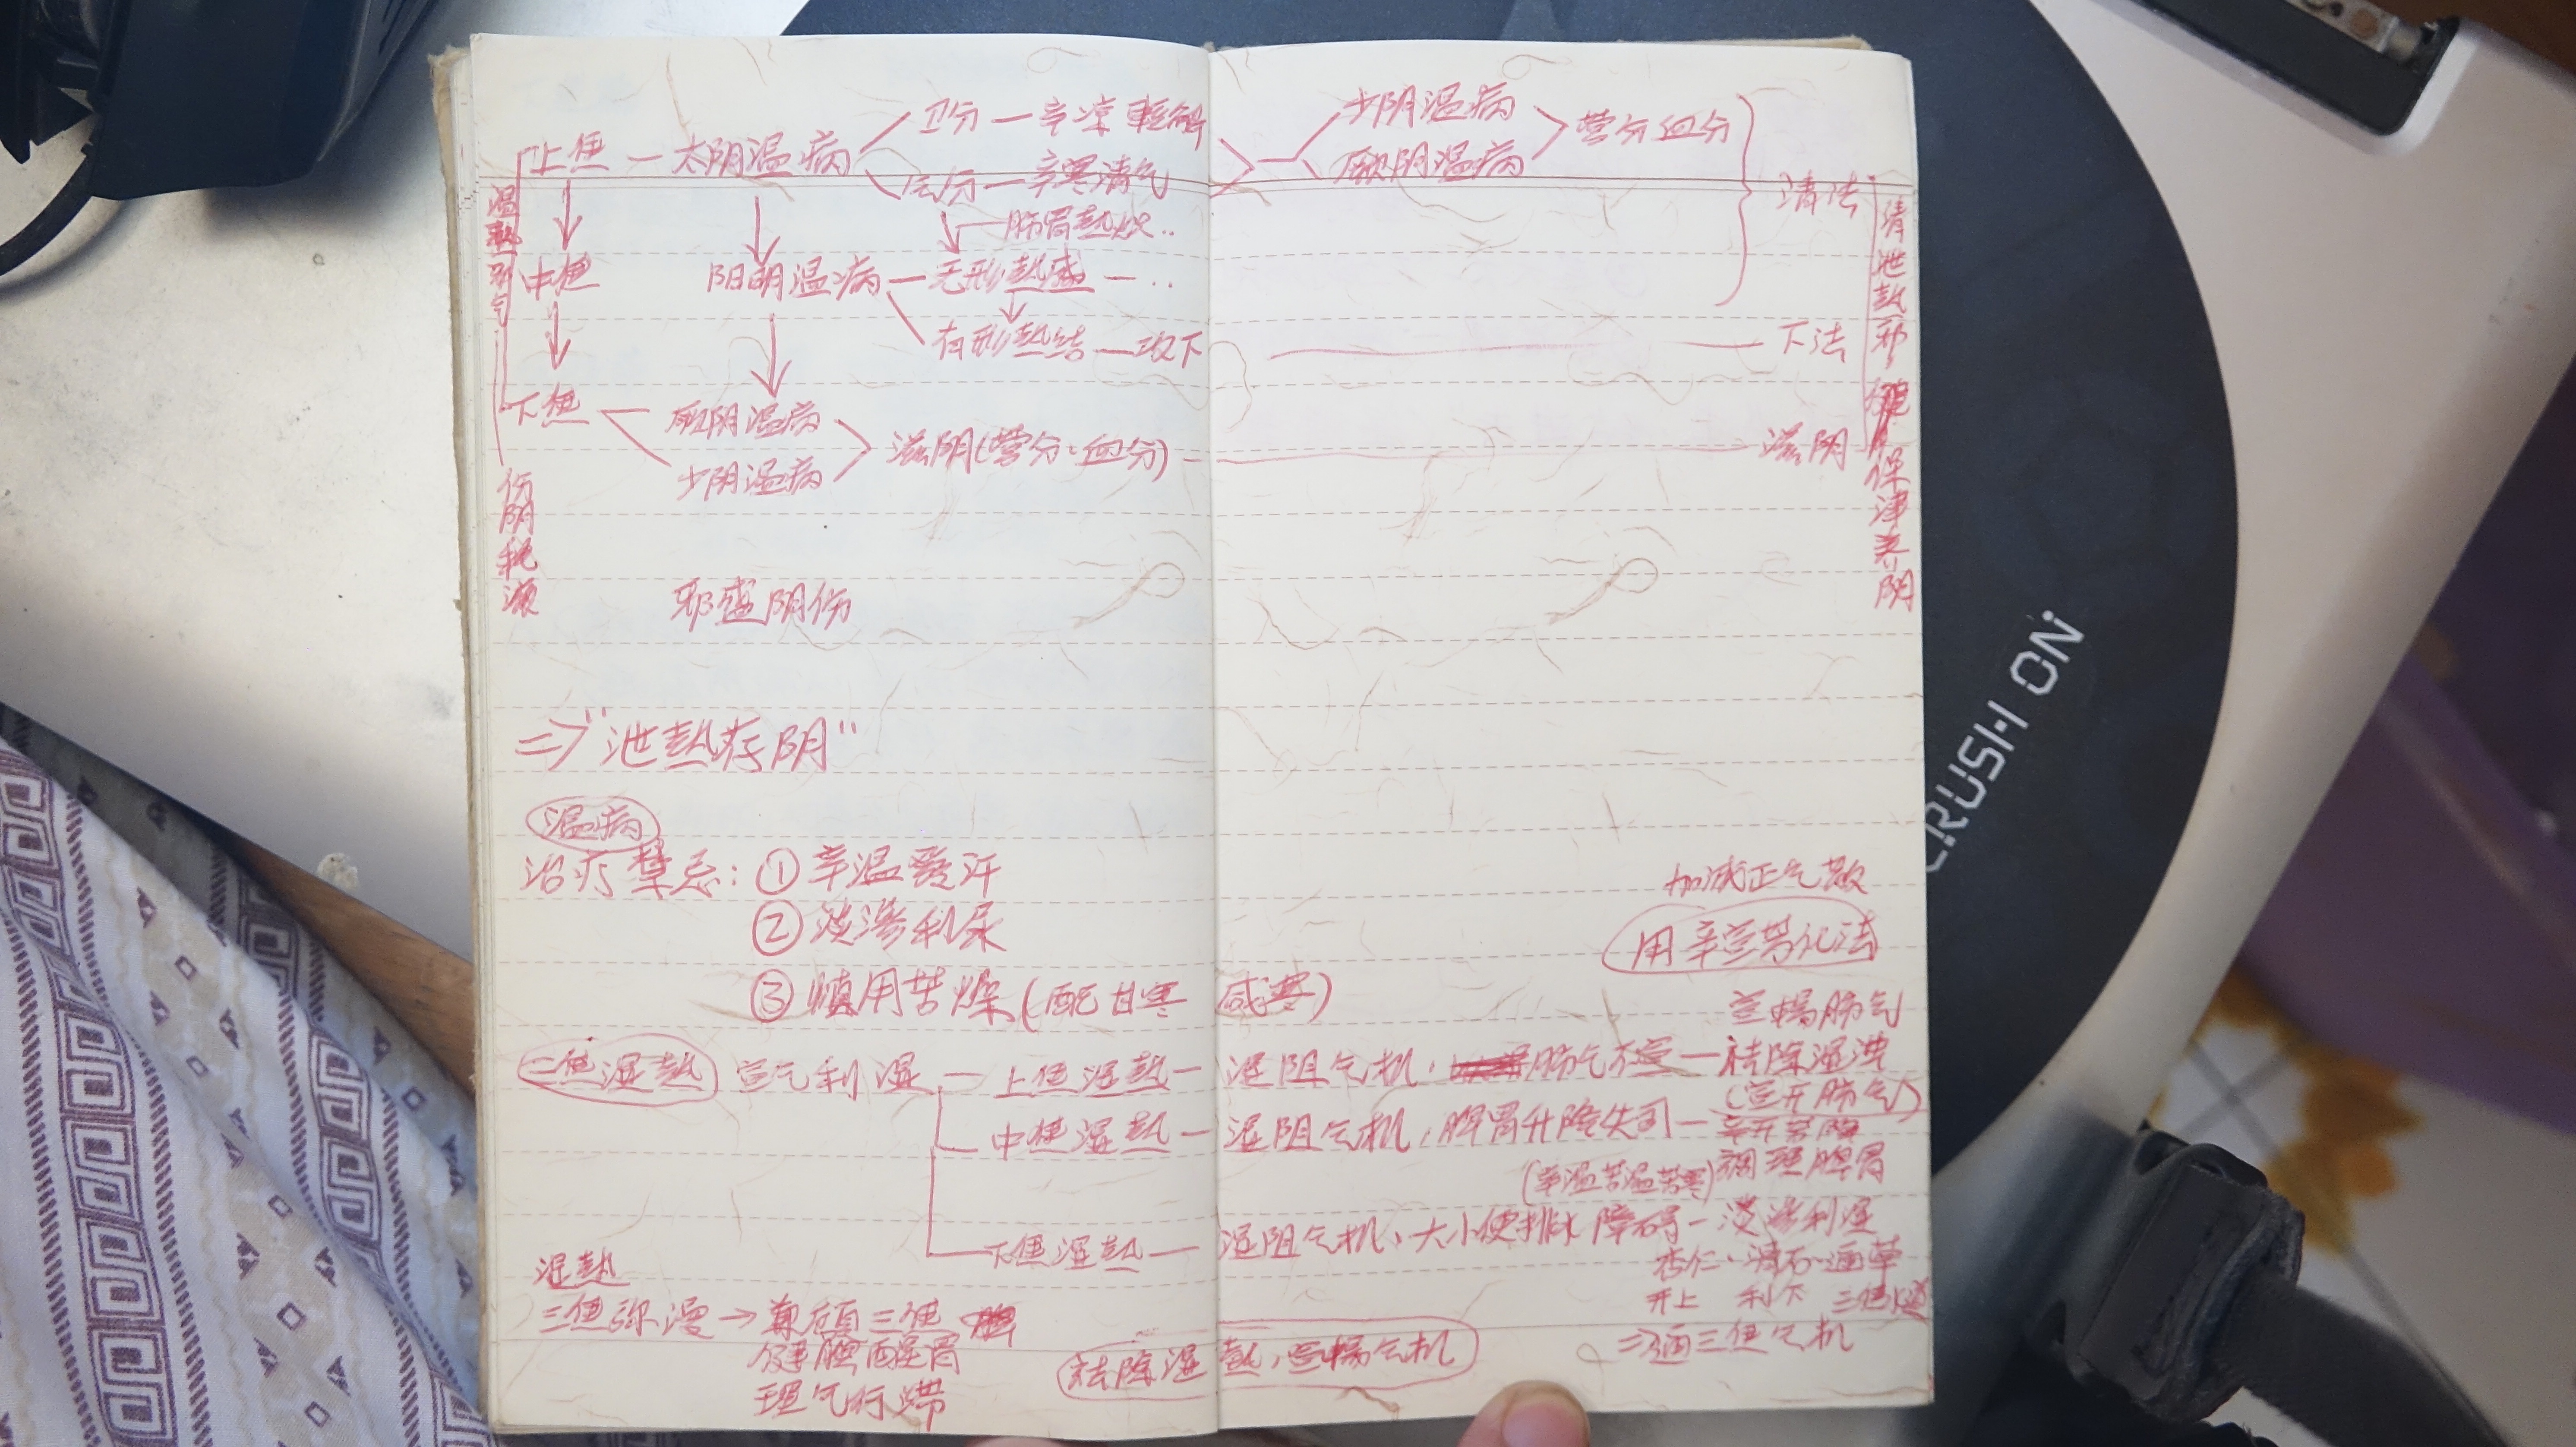 上焦 — 太阴温病
卫分 — 辛凉輕解
气分 — 辛寒清气
少阴温病
厥阴温病
营分 血分
清法
肺胃熱炽..
中焦
阳明温病 — 无形熱盛 — ..
有形熱结 — 攻下
下法
下焦
厥阴温病
少阴温病
滋阴(营分、血分)
滋阴
温熱邪气
伤阴耗液
清泄熱邪
保津养阴
邪盛阴伤
⇒"泄熱存阴"
温病
治疗禁忌: ① 辛温發汗
② 淡渗利尿
③ 慎用苦燥(配甘寒 咸寒)
加减正气散
用辛宣芳化法
宣暢肺气
三焦湿熱 宣气利湿 — 上焦湿熱 — 湿阻气机, 肺气不宣 — 祛除湿浊
(宣开肺气)
中焦湿熱 — 湿阻气机, 脾胃升降失司 — 辛开苦降
(辛温苦温苦寒) 調理脾胃
下焦湿熱 — 湿阻气机、大小便排泄障碍 — 淡渗利湿
杏仁、滑石、通草
开上 利下 三焦
⇒通三焦气机
湿熱
三焦弥漫 → 兼顧三焦
健脾醒胃
理气行滞
祛除湿熱, 宣暢气机
CRUSH ON